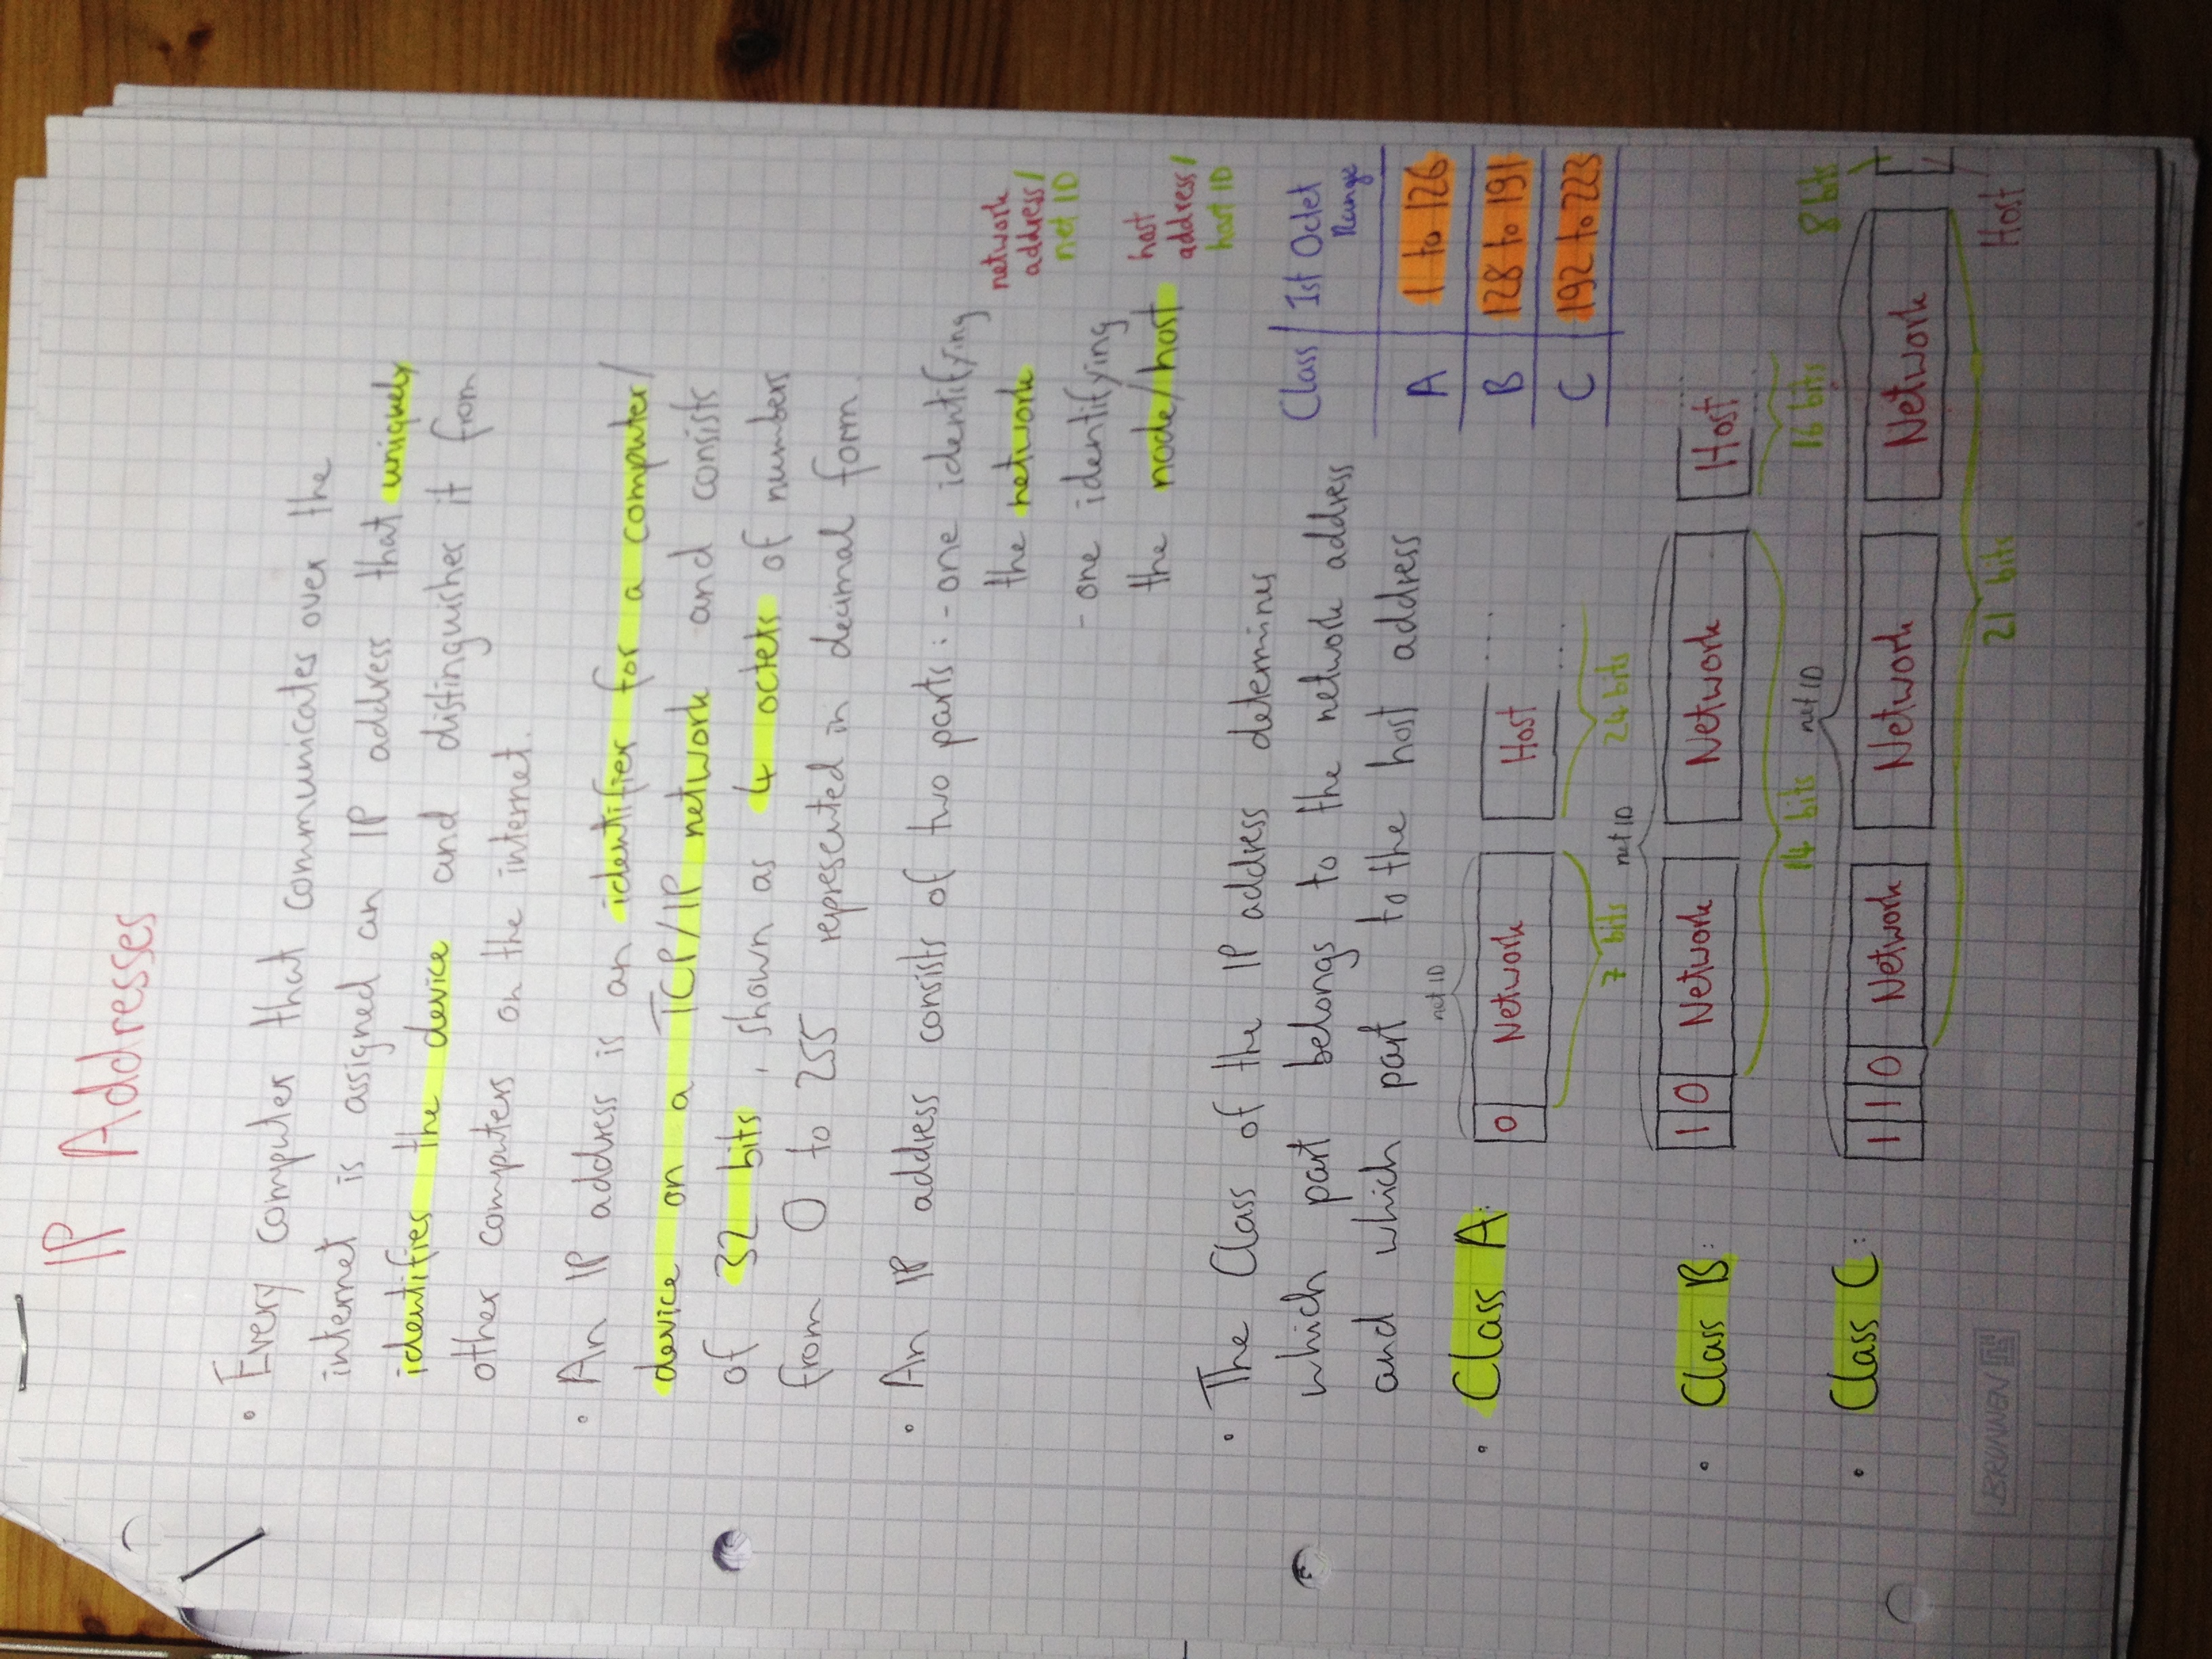 IP Addresses
• Every computer that communicates over the
internet is assigned an IP address that uniquely
identifies the device and distinguishes it from
other computers on the internet.
• An IP address is an identifier for a computer/
device on a TCP/IP network and consists
of 32 bits, shown as 4 octets of numbers
from 0 to 255 represented in decimal form.
• An IP address consists of two parts: - one identifying
the network
network address/
net ID
- one identifying
the node/host
host address/
host ID
• The Class of the IP address determines
which part belongs to the network address
and which part to the host address
Class | 1st Octet Range
A 1 to 126
B 128 to 191
C 192 to 223
net ID
• Class A: 0 Network Host ....
7 bits 24 bits
net ID
• Class B: 1 0 Network Network Host ...
14 bits 16 bits
net ID
• Class C: 1 1 0 Network Network Network
8 bits
21 bits
Host
BRUNNEN